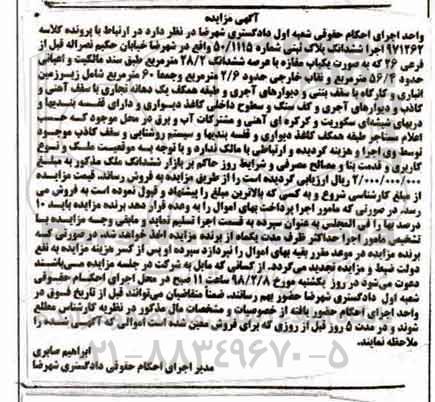 آگهی مزایده
واحد اجرای احکام حقوقی شعبه اول دادگستری شهرضا در نظر دارد در ارتباط با پرونده کلاسه
۹۷۱۲۶۲ اجرا ششدانگ پلاک ثبتی شماره ۵۰/۱۱۱۵ واقع در شهرضا خیابان حکیم نصراله قبل از
فرعی ۲۶ که به صورت یکباب مغازه با عرصه ششدانگ ۲۸/۲ مترمربع طبق سند مالکیت و اعیانی
حدود ۵۶/۴ مترمربع و نقاب خارجی حدود ۲/۶ مترمربع وجمعا ۶۰ مترمربع شامل زیرزمین
انباری و کارگاه با سقف بتنی و دیوارهای آجری و طبقه همکف یک دهانه تجاری با سقف آهنی و
کاذب و دیوارهای آجری و کف سنگ و سطوح داخلی کاغذ دیواری و دارای قفسه بندیها و
دربهای شیشه‌ای سکوریت و کرکره ای آهنی و مشترکات آب و برق در محل موجود که حسب
اعلام مستاجر طبقه همکف کاغذ دیواری و قفسه بندیها و سیستم روشنایی و سقف کاذب موجود
توسط وی اجرا و هزینه گردیده و ارتباطی با مالک ندارد و با توجه به موقعیت ملک و نوع
کاربری و قدمت بنا و مصالح مصرفی و شرایط روز حاکم بر بازار ششدانگ ملک مذکور به مبلغ
۲/۰۰۰/۰۰۰/۰۰۰ ریال ارزیابی گردیده است را از طریق مزایده به فروش رساند. قیمت مزایده
از مبلغ کارشناسی شروع و به کسی که بالاترین مبلغ را پیشنهاد و قبول نموده است به فروش می
رسد. در صورتی که مامور اجرا پرداخت بهای اموال را به وعده قرار دهد برنده مزایده باید ۱۰
درصد بها را فی المجلس به عنوان سپرده به قسمت اجرا تسلیم نماید و مابقی وجه مزایده با
تشخیص مامور اجرا حداکثر ظرف مدت یکماه از برنده مزایده اخذ خواهد شد. در صورتی که
برنده مزایده در موعد مقرر بقیه بهای اموال را نپردازد سپرده او پس از کسر هزینه مزایده به نفع
دولت ضبط و مزایده تجدید می‌گردد. از کسانی که مایل به شرکت در جلسه مزایده می‌باشند
دعوت می‌شود در روز یکشنبه مورخ ۹۸/۲/۸ ساعت ۱۱ صبح در محل اجرای احکام حقوقی
شعبه اول دادگستری شهرضا حضور بهم رسانند. ضمناً متقاضیان می‌توانند قبل از تاریخ فوق در
واحد اجرای احکام حضور یافته از خصوصیات و مشخصات مال مذکور در نظریه کارشناس مطلع
شوند و در مدت ۵ روز قبل از روزی که برای فروش معین شده است اموالی که آگهی شده را
ملاحظه نمایند.
ابراهیم صابری
مدیر اجرای احکام حقوقی دادگستری شهرضا
۰۲۱-۸۸۳۴۹۶۷۰-۵